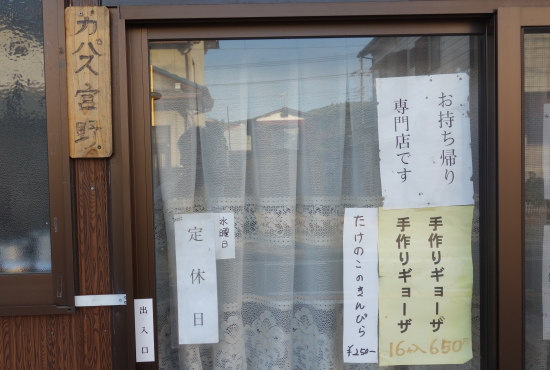 カパス宮野
お持ち帰り
専門店です
水曜日
定休日
たけのこのきんぴら
¥250-
手作りギョーザ
手作りギョーザ
16コ入 650円
出入口